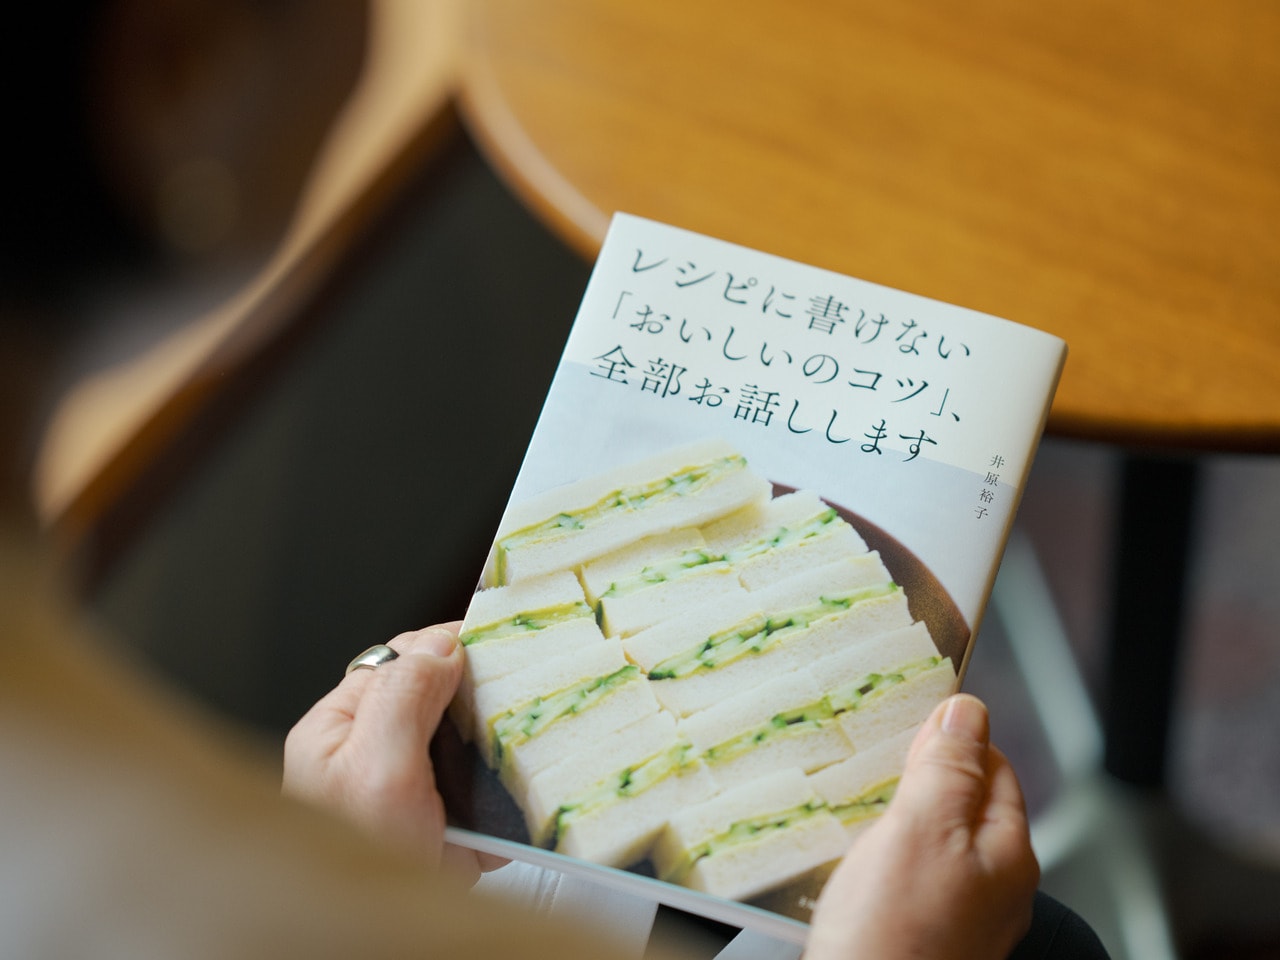 レシピに書けない
「おいしいのコツ」、
全部お話しします
井原裕子